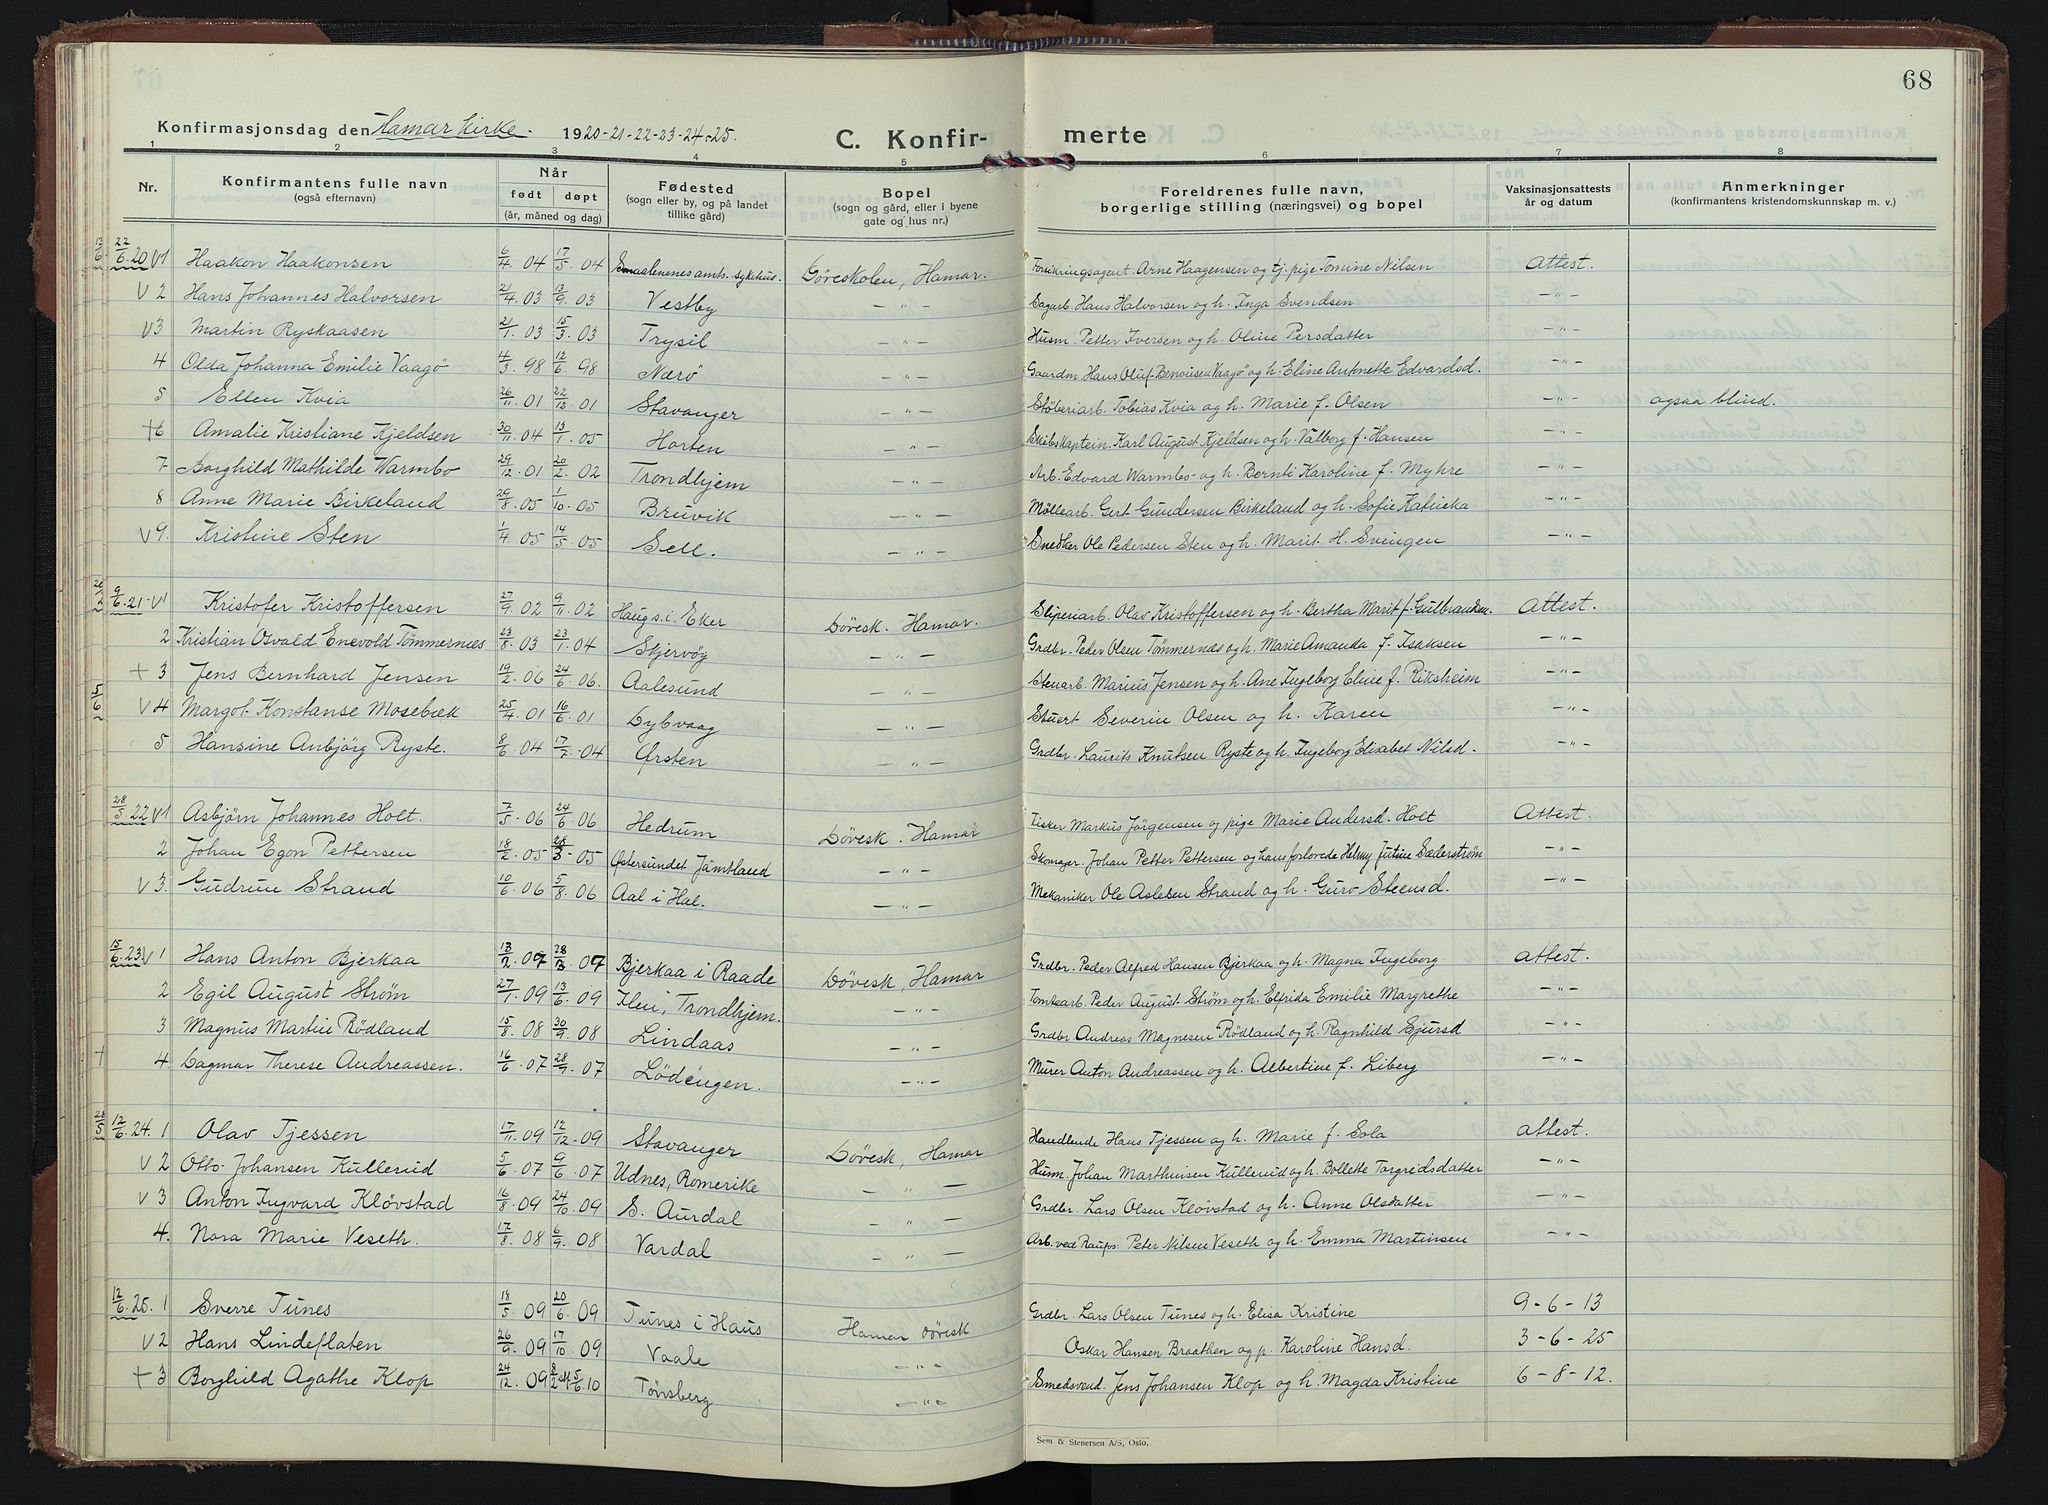 68
Konfirmasjonsdag den Hamar kirke. 1920-21-22-23-24-25. C. Konfir- merte
1 2 3 4 5 6 7 8
Nr. Konfirmantens fulle navn (også efternavn) Når født døpt (år, måned og dag) Fødested (sogn eller by, og på landet tillike gård) Bopel (sogn og gård, eller i byene gate og hus nr.) Foreldrenes fulle navn, borgerlige stilling (næringsvei) og bopel Vaksinasjonsattests år og datum Anmerkninger (konfirmantens kristendomskunnskap m. v.)
22/6.20 V1 Haakon Haakonsen 6/4.04 17/5.04 Smaalenenes amts. sykehus. Døveskolen, Hamar. Forsikringsagent. Arne Haagensen og tj. pige Tomine Nilsen Attest.
V 2 Hans Johannes Halvorsen 21/4.03 13/9.03 Vestby -"- Sagarb. Hans Halvorsen og h. Inga Svendsen -"-
V3 Martin Ryskaasen 21/1.03 15/3.03 Trysil -"- Husm. Petter Iversen og h. Oline Persdatter -"-
4 Olda Johanna Emilie Vaagö 4/3.98 12/6.98 Nærö -"- Gaardm. Hans Oluf Benoisen Vaagö og h. Eline Antonette Edvardsd. -"-
5 Ellen Kvia 26/11.01 22/12.01 Stavanger -"- Stöberiarb. Tobias Kvia og h. Marie f. Olsen -"- ogsaa blind.
+6 Amalie Kristiane Kjeldsen 30/11.04 13/1.05 Horten -"- Skibskaptein. Karl August Kjeldsen og h. Valborg f. Hansen -"-
7 Borghild Mathilde Warmbo 29/12.01 20/2.02 Trondhjem -"- Arb. Edvard Warmbo og h. Bernti Karoline f. Myhre -"-
8 Anne Marie Birkeland 29/8.05 1/10.05 Bruvik -"- Möllearb. Gert Gundersen Birkeland og h. Sofie Katricka -"-
V9. Kristine Sten 1/4.05 14/5.05 Sell. -"- Snedker Ole Pedersen Sten og h. Marit H. Svingen -"-
9/6.21 V1 Kristofer Kristoffersen 27/9.02 9/11.02 Haug s. i. Eker Døvesk. Hamar. Sliperiarb. Olav Kristoffersen og h. Bertha Marit f. Gulbrandsen. Attest.
2 Kristian Osvald Enevold Tömmernæs 23/8.03 23/1.04 Skjervöy -"- Grdbr. Peder Olsen Tömmernæs og h. Marie Amanda f. Isaksen -"-
+ 3 Jens Bernhard Jensen 19/2.06 24/6.06. Aalesund -"- Stenarb. Marius Jensen og h. Ane Ingeborg Eline f. Riksheim -"-
5/6 V4 Margot Konstanse Mosebæk 25/4.01 16/6.01 Dybvaag -"- Stuert Severin Olsen og h. Karen -"-
5 Hansine Anbjörg Ryste. 8/6.04 17/7.04 Ørsten -"- Grdbr. Laurits Knutsen Ryste og h. Ingeborg Elisabet Nilsd. -"-
28/5.22 V1 Asbjörn Johannes Holt. 7/5.06 24/6.06 Hedrum Døvesk. Hamar Fisker Markus Jörgensen og pige Marie Andersd. Holt Attest.
2 Johan Egon Pettersen 18/2.05 28/3.05 Østersundet Jämtland -"- Skomager. Johan Petter Pettersen og hans forlovede Helmy Justine Sæderström -"-
V 3. Gudrun Strand 10/6.06 5/8.06 Aal i Hal. -"- Mekaniker Ole Aslesen Strand og h. Guro Steensd. -"-
15/6.23 V1 Hans Anton Bjerkaa 13/2.07 28/3 07 Bjerkaa i Raade Døvesk, Hamar Grdbr. Peder Alfred Hansen Bjerkaa og h. Magna Ingeborg Attest.
2 Egil August Strøm 27/1.09 13/6.09 Ilen, Trondhjem. -"- Tomtearb. Peder August Strøm og h. Elfrida Emilie Margrethe -"-
3 Magnus Martin Rödland 15/8.08 30/9.08 Lindaas -"- Grdbr Andreas Magnesen Rödland og h. Ragnhild Sjursd -"-
+ 4. Dagmar Therese Andreassen. 16/6.07 28/9.07 Lödengen. -"- Murer Anton Andreassen og h. Albertine f. Liberg -"-
12/6.24. 1 Olav Tjessen 17/11.09 12/12.09 Stavanger Døvesk, Hamar Handlende Hans Tjessen og h. Marie f. Sola Attest.
V 2 Otto Johansen Kullerud 5/6.07 9/6.07 Udnes, Romerike -"- Husm. Johan Marthinsen Kullerud og h. Bollette Torgeidsdatter -"-
V 3 Anton Ingvard Kløvstad 16/8.09 24/10.09 S. Aurdal -"- Grdbr. Lars Olsen Kløvstad og h. Anne Olsdatter -"-
4. Nora Marie Veseth. 17/8.08 6/9.08 Vardal -"- Arb. ved Raufos. Peter Nilsen Veseth og h. Emma Martinsen -"-
12/6.25. 1 Sverre Tunes 18/5.09 20/6.09 Tunes i Haus Hamar døvesk Grdbr. Lars Olsen Tunes og h. Elisa Kristine 9-6-13
V2 Hans Lindeflaten 26/9.09 17/10.09 Vaale -"- Oskar Hansen Braathen og p. Karoline Hansd. 3-6-25
+ 3 Borghild Agathe Klop 24/12.09 8/2 st 5/6.10 Tønsberg -"- Smedsvend. Jens Johansen Klop og h. Magda Kristine 6-8-12.
Sem & Stenersen A/S, Oslo.